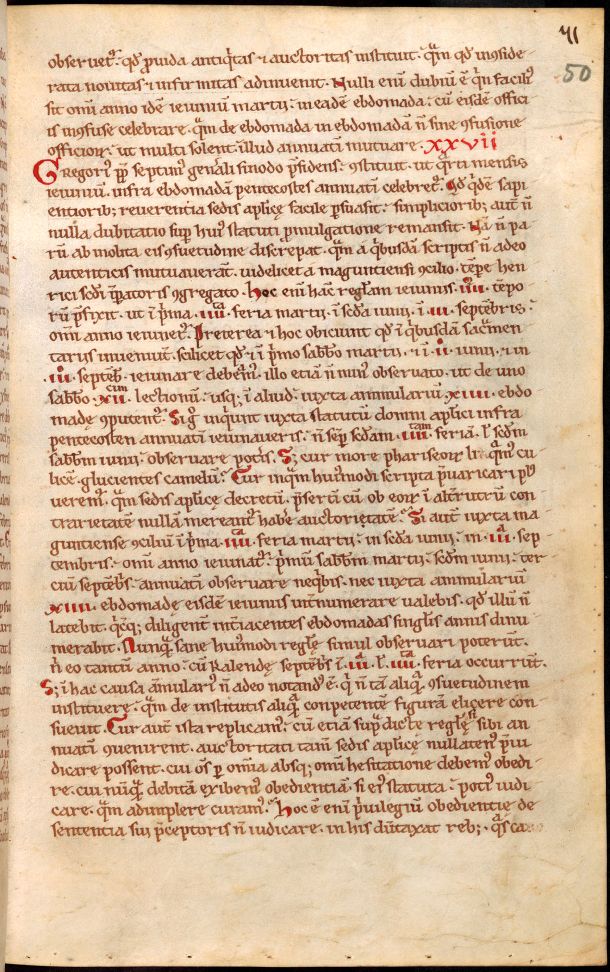 71
50
obseruet᷑. qd̄ ꝓuida antiq̇tas ⁊ auctoritas instituit. q̄m qd̄ inꝯside-
rata nouitas ⁊ infirmitas adinuenit. Nulli eni dubiū ē q̇n faciliꝰ
sit omī anno idē ieiuniū martii. in eadē ebdomada. cū eisdē offici-
is inꝯfuse celebrare. q̄m de ebdomada in ebdomadā ñ sine ꝯfusione
officioꝝ. ut multi solent. illud annuatī mutuare. XXVII
Gregoriꝰ pp̄ septimꝰ gen̄ali sinodo p̄sidens. ꝯstituit. ut q̇rti mensis
ieiuniū. infra ebdomadā pentecostes annuatī celebret᷑. Qd̄ q̇dē sapi
entiorib; reuerentia sedis aplicę facile ꝑsuasit. simpliciorib; aut̄ ñ
nulla dubitatio suꝑ huiꝰ statuti ꝓmulgatione remansit. Nā ñ pa-
rū ab inolita eis ꝯsuetudine discrepat. quā a q̇busdā scriptis ñ adeo
autenticis mutuauerāt. uidelicet a maguntiensi ꝯcilio. tēꝑe hen
rici sc̄di īꝑatoris ꝯgregato. Hoc eni hanc reglam ieiuniis .IIIIor. tēpo-
rū p̄fixit. ut ī ṗma .IIIIta. feria martii. ī sc̄da iunii. ī .IIIa. septēbris.
omī anno ieiunet᷑. Preterea ⁊ hoc obiciunt qd̄ ī q̇busdā sac̄men
tariis inueniūt. scilicet qd̄ ⁊ ī ṗmo sabbo martii. ⁊ ī .IIo. iunii. ⁊ in
.IIIo. septēb̄. ieiunare debem᷒. illo etiā ñ minꝰ obseruato. ut de uno
sabbo .XIIcim. lectionū. usq; ī aliud. iuxta ānnulariū XIIII. ebdo
madę ꝯputent᷑. Si g̊ inquiunt iuxta statutū domni aplici infra
pentecosten annuatī ieiunaueris. ñ semꝑ sc̄dam .IIIItam. feriā. ł sc̄dm
sabbm iunii. obseruare potes. S; cur more phariseoꝝ liq̄m᷒ cu
licē. glucientes camelū. Cur inq̄m huiꝰmodi scripta p̄uaricari plꝰ
ueremur. q̄m sedis aplicę decretū. p̄sertī cū ob eoꝝ ī alt̄rutrū con
trarietatē nullā mereant᷑ habe auctoritatē. Si aut̄ iuxta ma-
guntiense ꝯciliū ī ṗma .IIIIta. feria martii. in sc̄da iunii. in .IIIa. sep-
tembris. omī anno ieiunat᷑. ṗmū sabbm martii. sc̄dm iunii. ter-
ciū septēbris. annuatī obseruare neq̇bis. nec iuxta ānnulariū
XIIII. ebdomadę eisdē ieiuniis int̄numerare ualebis. qd̄ illū ñ
latebit. q̇cq; diligent̄ int̄iacentes ebdomadas singlis annis dinu
merabit. Nunq̄ sane huiꝰmodi reglę simul obseruari poterūt.
ñ eo tantū anno. cū kalendę septēb̄s ī .IIIa. ł .IIIIta. feria occurrūt.
S; ī hac causa ānnulariꝰ ñ adeo notandꝰ ē. q̇ ñ tā aliq̄ ꝯsuetudinem
instituere. q̄m de institutis aliq̄ competentē figurā elicere con
sueuit. Cur aut̄ ista replicam᷒. cū etiā sup̄dictę reglę si sibi an
nuatī ꝯuenirent. auctoritati tam̄ sedis aplicę nullaten᷒ p̄iu
dicare possent. cui os ꝑ omia absq; omī hesitatione debem᷒ obedi-
re. cui nūq̄ debitā exibem᷒ obedientiā. si eiꝰ statuta. potiꝰ iudi
care. q̄m adimplere curam᷒. Hoc ē eni ṗuilegiū obedientię de
sententia sui p̄ceptoris ñ iudicare. in his dūtaxat reb;. q̄s ca